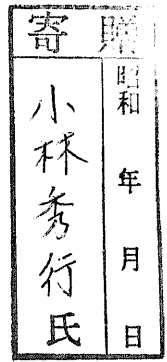 寄贈
昭和　年　月　日
小林秀行氏